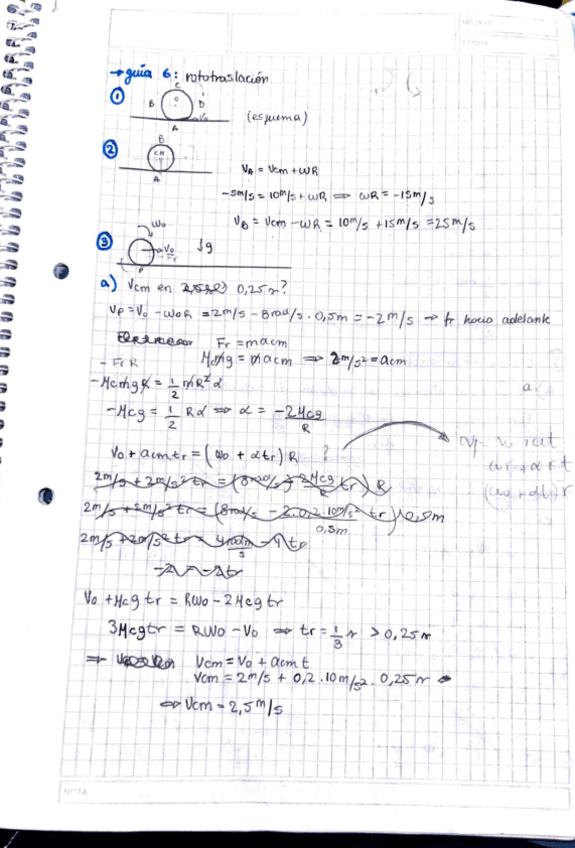 → guía 6: rototraslación
① C B D A V₀ (esquema)
② B CM A
V_A = Vcm + ωR
-5m/s = 10m/s + ωR ⇒ ωR = -15m/s
V_B = Vcm - ωR = 10m/s + 15m/s = 25m/s
③ ω₀ V₀ Fr P ↓g
a) Vcm en 0,25s?
V_P = V₀ - ω₀R = 2m/s - 8rad/s . 0,5m = -2m/s → fr hacia adelante
Fr = macm
Mcmg = macm ⇒ 2m/s² = acm
- Fr R
-Mcmg R = 1/2 mR² α
-Mcg = 1/2 Rα ⇒ α = -2Mcg/R
V₀ + acm tr = (ω₀ + αtr) R ?
(ω₀ + αt) r
2m/s + 2m/s² tr = (8rad/s - 2Mcg/R tr) R
2m/s + 2m/s² tr = (8rad/s - 2.0,2.10m/s²/0,5m tr) 0,5m
V₀ + Mcg tr = Rω₀ - 2Mcg tr
3Mcgtr = Rω₀ - V₀ ⇒ tr = 1/3 s > 0,25s
⇒ Vcm = V₀ + acm t
Vcm = 2m/s + 0,2 . 10m/s² . 0,25s
⇔ Vcm = 2,5m/s
NOTA